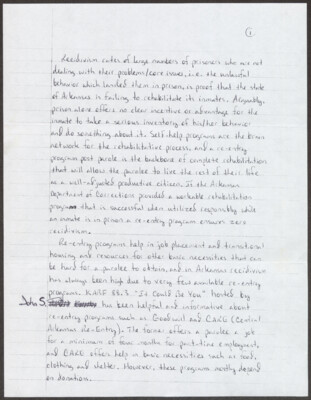 1
Recidivism rates of large numbers of prisoners who are not
dealing with their problems/core issues, i.e. the unlawful
behavior which landed them in prison, is proof that the state
of Arkansas is failing to rehabilitate its inmates. Arguably,
prison alone offers no clear incentive or advantage for the
inmate to take a serious inventory of his/her behavior
and do something about it. Self-help programs are the
network for the rehabilitative process, and a re-entry
program post parole is the backbone of complete rehabilitation
that will allow the parolee to live the rest of their life
as a well-adjusted productive citizen. If the Arkansas
Department of Corrections provided a workable rehabilitation
program that is successful when utilized responsibly while
an inmate is in prison a re-entry program ensures zero
recidivism.
Re-entry programs help in job placement and transitional
housing, and resources for other basic necessities that can
be hard for a parolee to obtain, and in Arkansas recidivism
has always been high due to very few available re-entry
programs. KABF 88.3 "It Could Be You" hosted by
John S. has been helpful and informative about
re-entry programs such as Goodwill and CARE (Central
Arkansas Re-Entry). The former offers a parolee a job
for a minimum of four months for part-time employment,
and CARE offers help in basic necessities such as food,
clothing and shelter. However, these programs mostly depend
on donation.